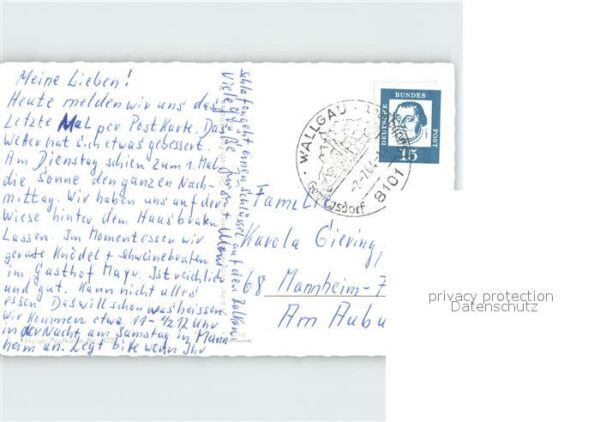 Meine Lieben!
Heute melden wir uns das
Letzte Mal per Postkarte. Das
Wetter hat sich etwas gebessert.
Am Dienstag schien zum 1. Mal
die Sonne den ganzen Nach-
mittag. Wir haben uns auf der
Wiese hinter dem Haus braten
Lassen. Im Moment essen wir
gerade Knödel + Schweinebraten
im Gasthof Mayr. Ist reichlich
und gut. Kann nicht alles
essen. Das will schon was heissen.
Wir kommen etwa 11-1/2 12 Uhr
in der Nacht am Samstag in Mann
heim an. Legt bitte wenn Ihr
schlafen geht einen Schlüssel auf den Balkon
Viele Grüße
WALLGAU
8101
DEUTSCHE
BUNDES
POST
15
Familie
Karola Giering,
68 Mannheim-
Am Aubu
privacy protection
Datenschutz